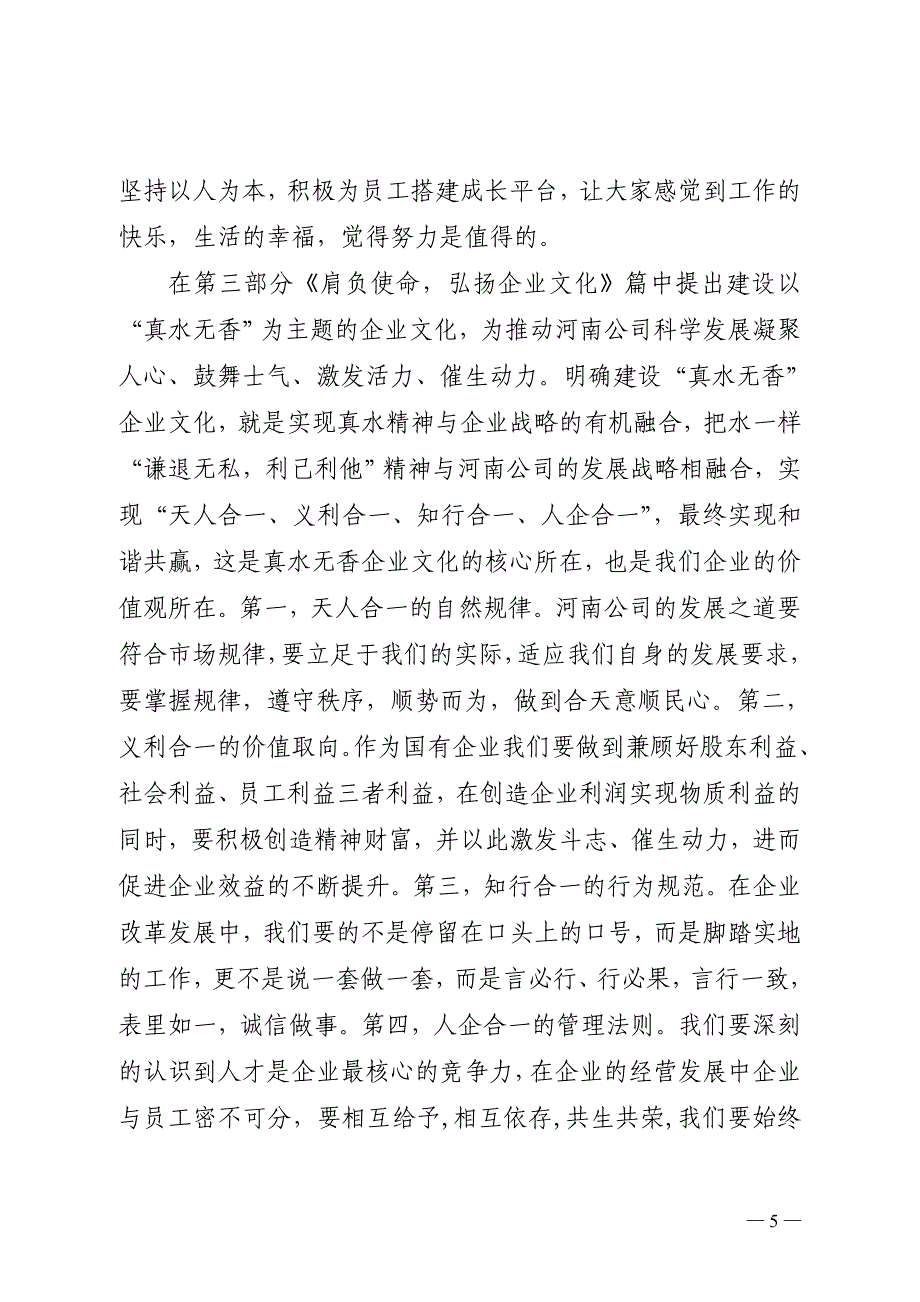 坚持以人为本，积极为员工搭建成长平台，让大家感觉到工作的
快乐，生活的幸福，觉得努力是值得的。
在第三部分《肩负使命，弘扬企业文化》篇中提出建设以
“真水无香”为主题的企业文化，为推动河南公司科学发展凝聚
人心、鼓舞士气、激发活力、催生动力。明确建设“真水无香”
企业文化，就是实现真水精神与企业战略的有机融合，把水一样
“谦退无私，利己利他”精神与河南公司的发展战略相融合，实
现“天人合一、义利合一、知行合一、人企合一”，最终实现和
谐共赢，这是真水无香企业文化的核心所在，也是我们企业的价
值观所在。第一，天人合一的自然规律。河南公司的发展之道要
符合市场规律，要立足于我们的实际，适应我们自身的发展要求，
要掌握规律，遵守秩序，顺势而为，做到合天意顺民心。第二，
义利合一的价值取向。作为国有企业我们要做到兼顾好股东利益、
社会利益、员工利益三者利益，在创造企业利润实现物质利益的
同时，要积极创造精神财富，并以此激发斗志、催生动力，进而
促进企业效益的不断提升。第三，知行合一的行为规范。在企业
改革发展中，我们要的不是停留在口头上的口号，而是脚踏实地
的工作，更不是说一套做一套，而是言必行、行必果，言行一致，
表里如一，诚信做事。第四，人企合一的管理法则。我们要深刻
的认识到人才是企业最核心的竞争力，在企业的经营发展中企业
与员工密不可分，要相互给予,相互依存,共生共荣,我们要始终
— 5 —